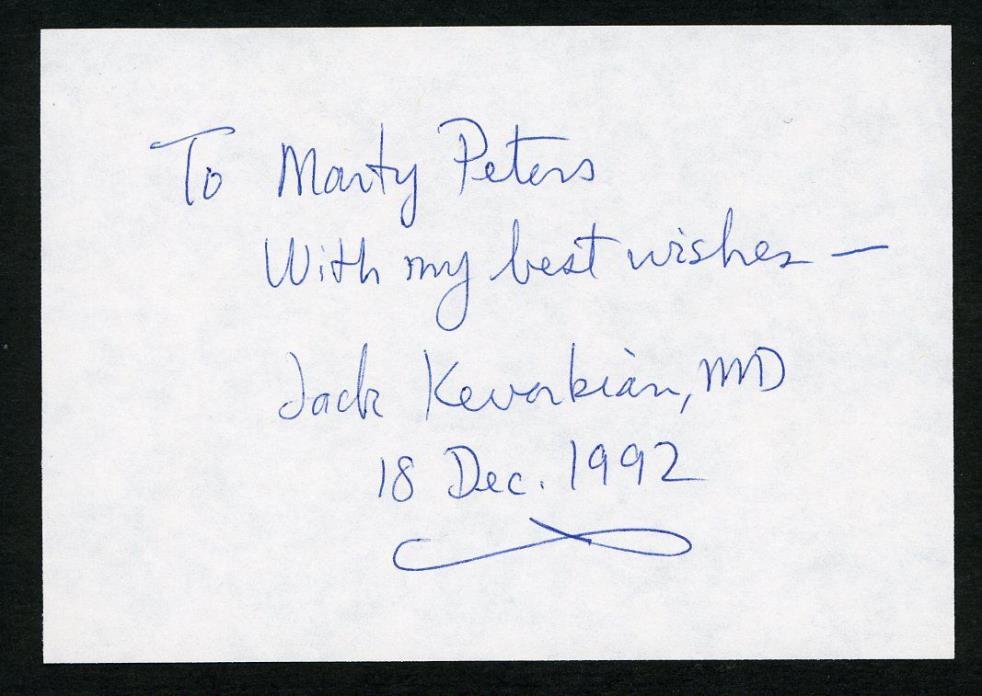 To Marty Peters
With my best wishes —
Jack Kevorkian, MD
18 Dec. 1992